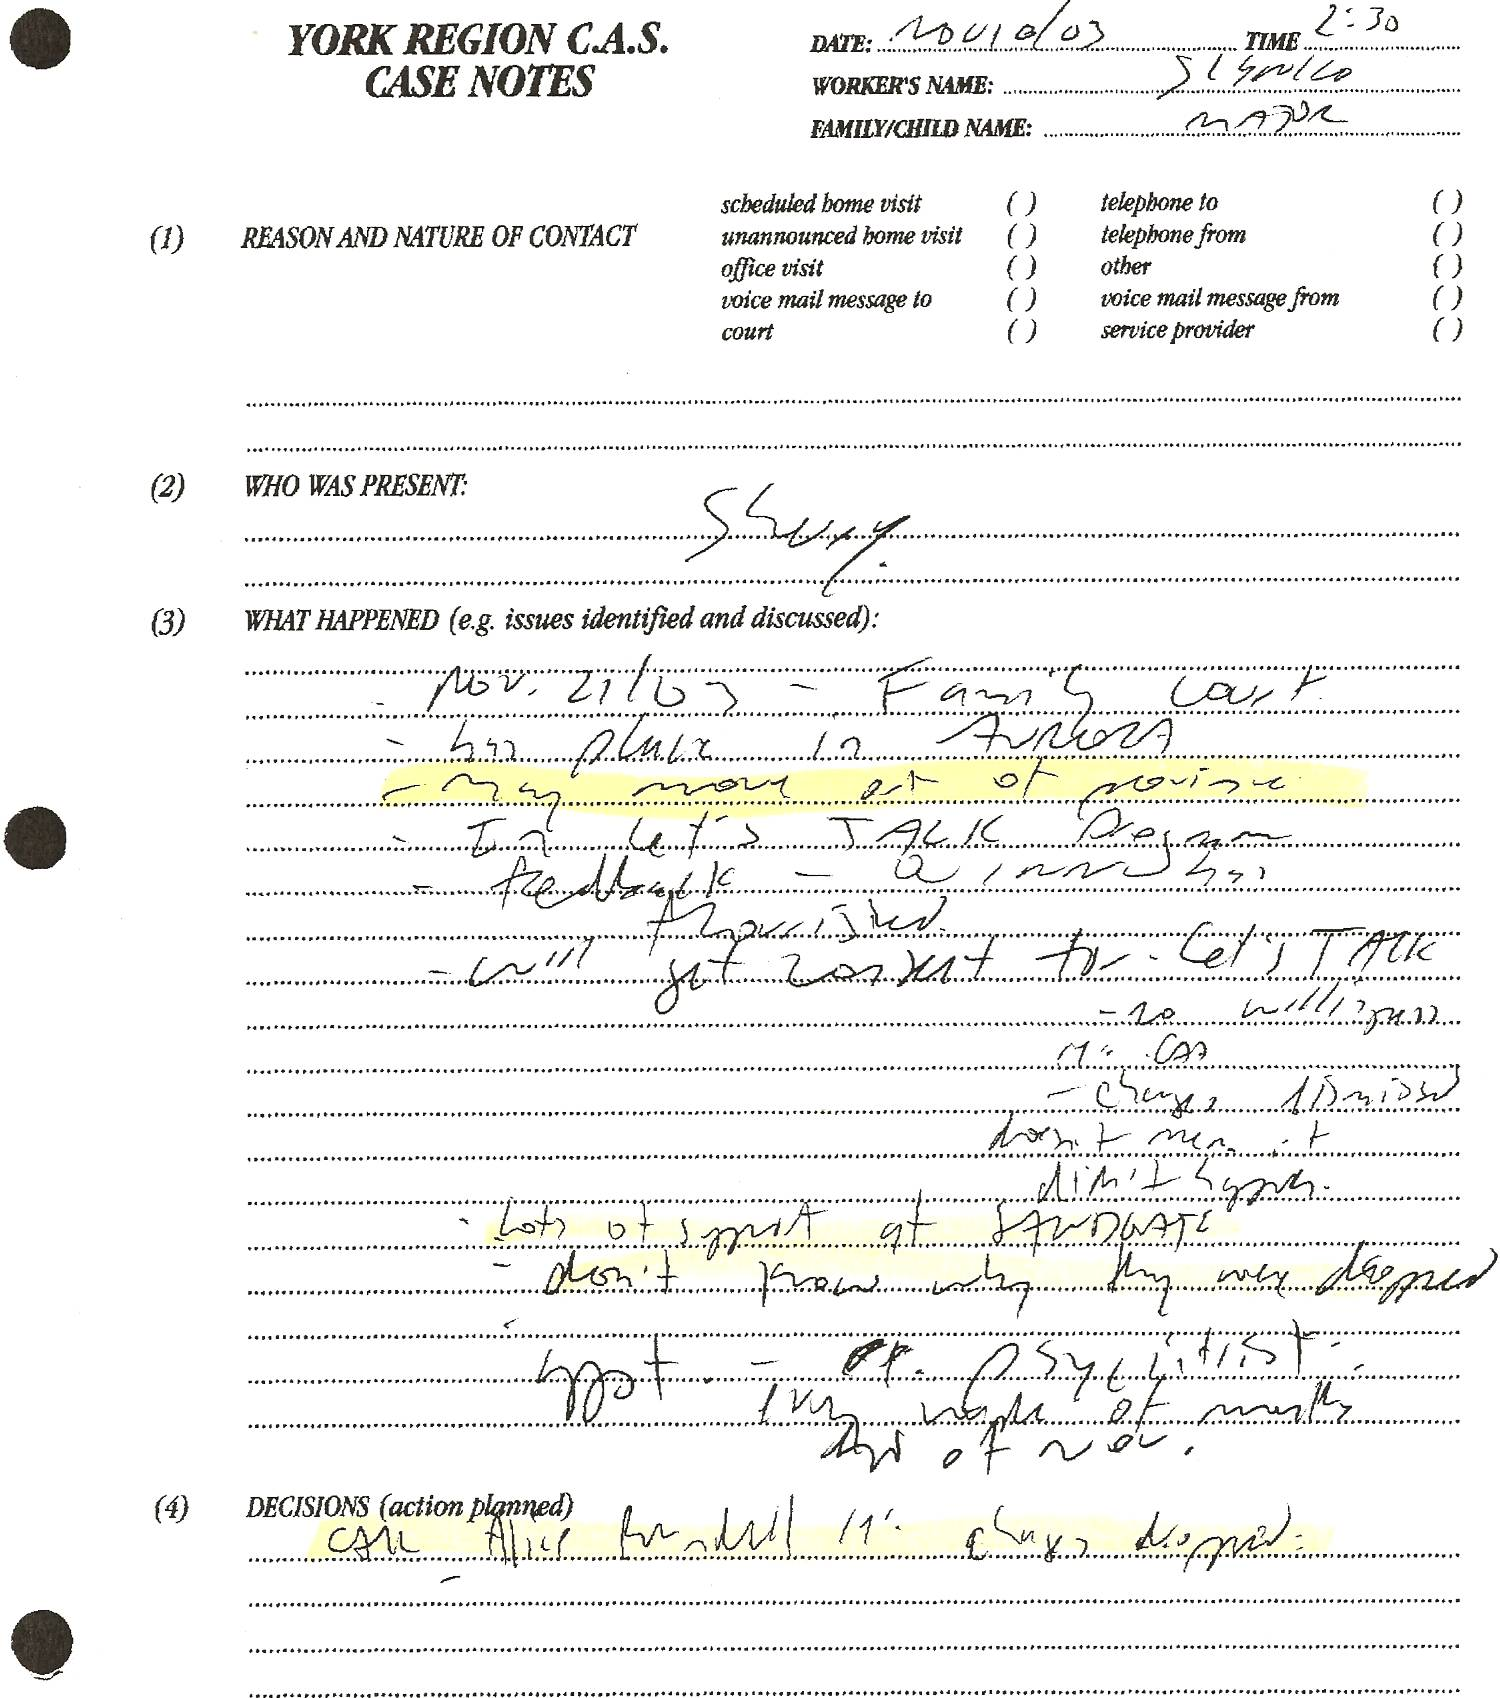 YORK REGION C.A.S.
CASE NOTES
DATE: Nov 10/03 TIME 2:30
WORKER'S NAME:
FAMILY/CHILD NAME: MAJOR
(1) REASON AND NATURE OF CONTACT
scheduled home visit ( ) telephone to ( )
unannounced home visit ( ) telephone from ( )
office visit ( ) other ( )
voice mail message to ( ) voice mail message from ( )
court ( ) service provider ( )
(2) WHO WAS PRESENT:
(3) WHAT HAPPENED (e.g. issues identified and discussed):
- Nov. 21/03 - Family Court.
- has place in AURORA
- may move out of province
- In Let's TALK Program
- feedback - has
flourished.
- will get consent for Let's TALK
- no
re: CAS
- charges dismissed
doesn't mean it
didn't happen.
- Lots of support at SANDGATE
- don't know why they were dropped
- appt. - psychitrist
of
of Nov.
(4) DECISIONS (action planned)
CALL Alice re: charges dropped.